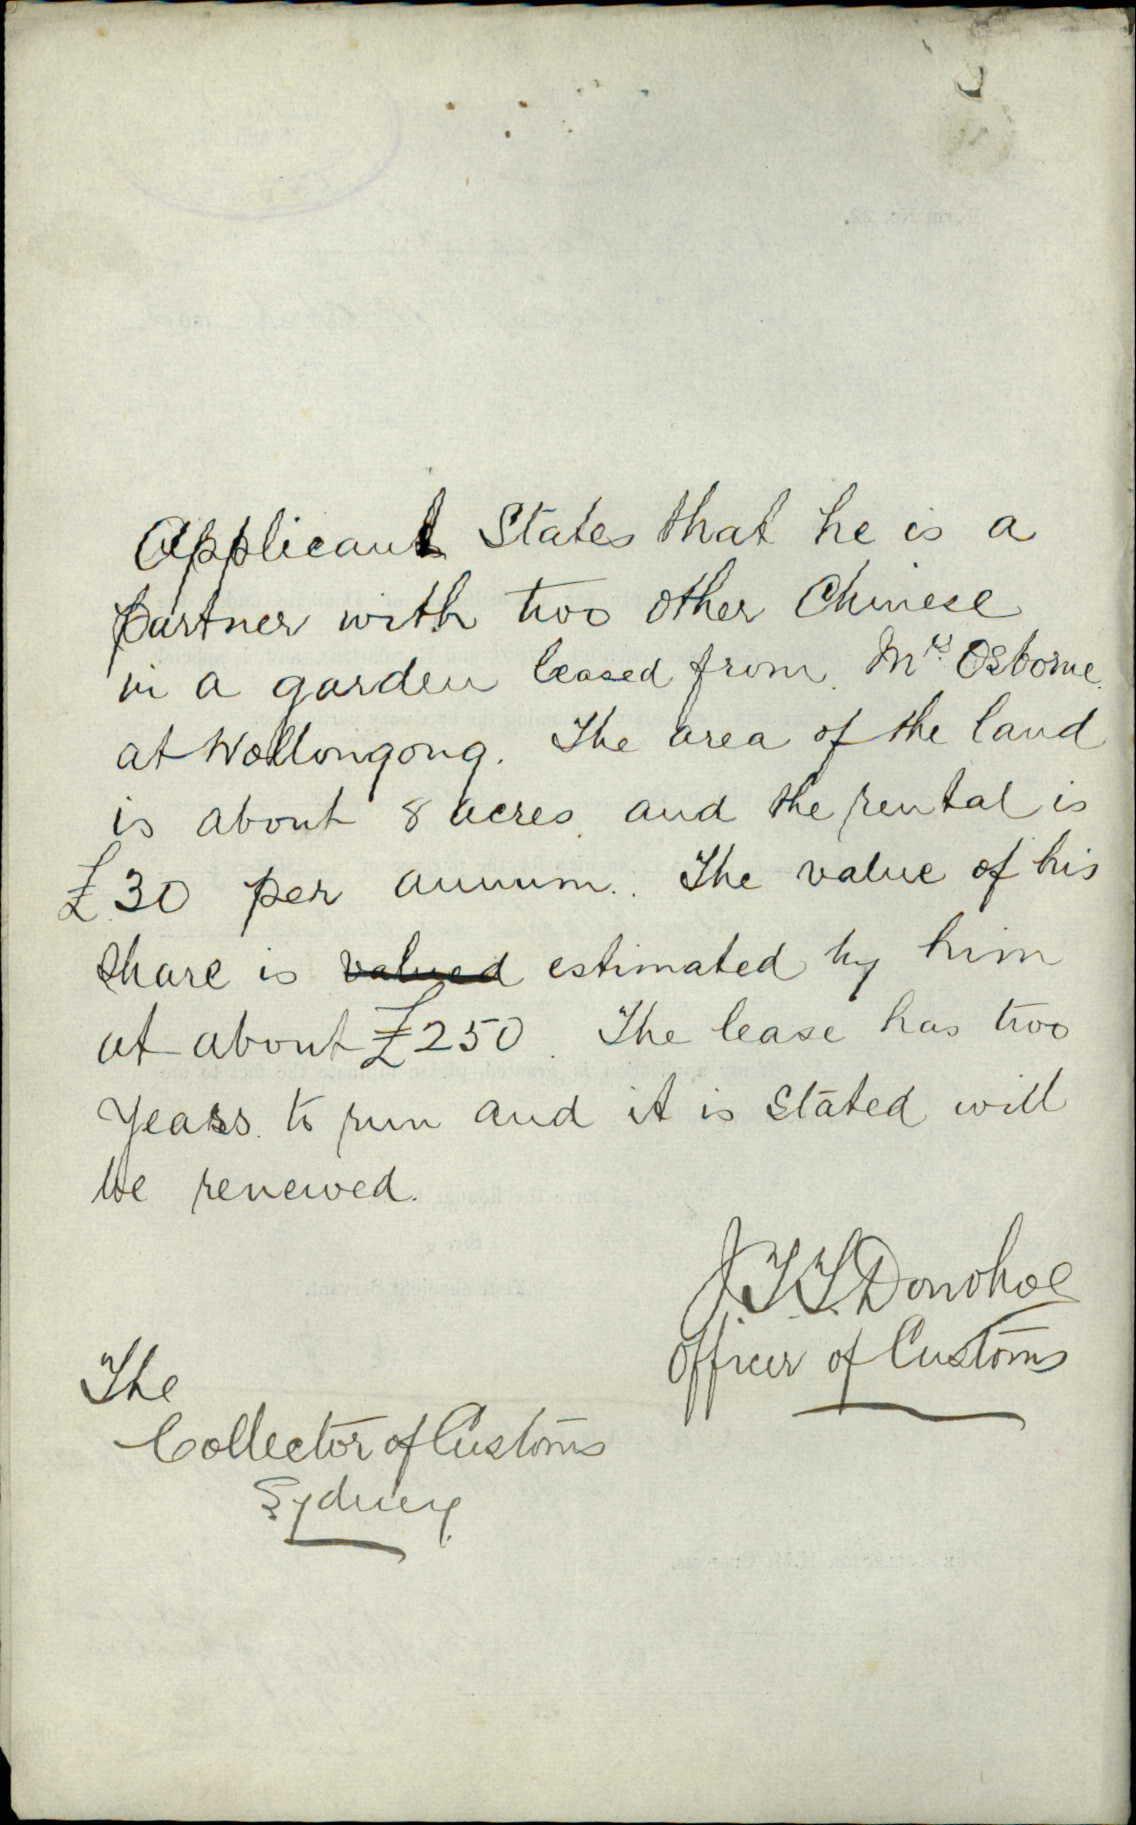 Applicant States that he is a
partner with two other Chinese
in a garden leased from Mrs. Osborne
at Wollongong. The area of the land
is about 8 acres and the rental is
£30 per annum. The value of his
share is valued estimated by him
at about £250. The lease has two
years to run and it is stated will
be renewed.
J.T.T. Donohoe
Officer of Customs
The
Collector of Customs
Sydney